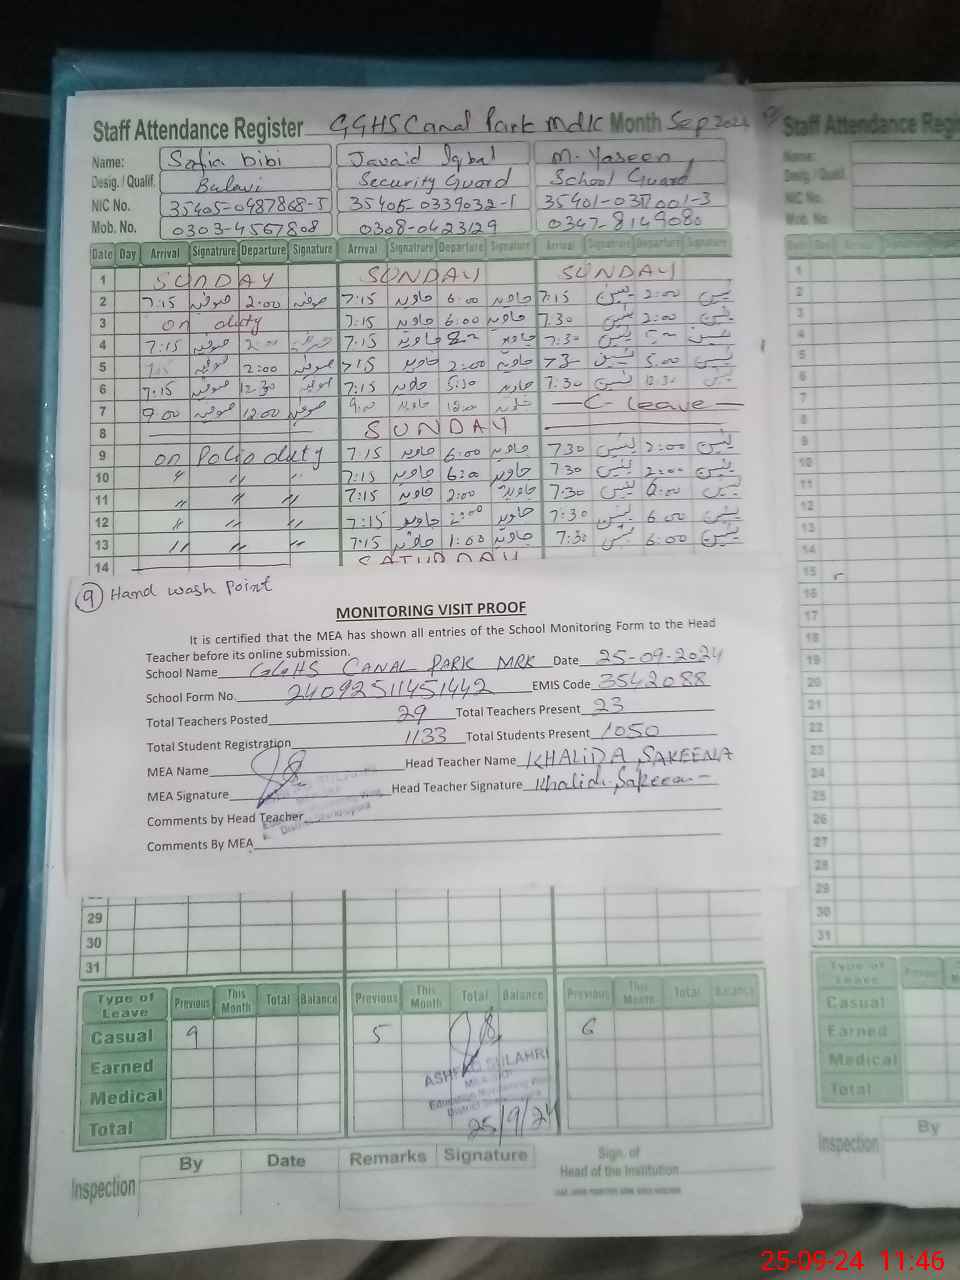 Staff Attendance Register GGHS Canal Park Mdk Month Sep 2024
Name: Sofia bibi Javaid Iqbal M. Yaseen
Desig. / Qualif. Bulavi Security Guard School Guard
NIC No. 35405-0487868-5 35405-0339032-1 35401-0317001-3
Mob. No. 0303-4567808 0308-0423129 0347-8149080
Date Day Arrival Signatrure Departure Signature Arrival Signatrure Departure Signature Arrival Signatrure Departure Signature
1 SUNDAY SUNDAY SUNDAY
2 7:15 صوفیہ 2:00 صوفیہ 7:15 جاوید 6:00 جاوید 7:15 یٰسین 2:00 یٰسین
3 on duty 7:15 جاوید 6:00 جاوید 7:30 یٰسین 2:00 یٰسین
4 7:15 صوفیہ 2:00 صوفیہ 7:15 جاوید جاوید 7:30 یٰسین یٰسین
5 صوفیہ 2:00 صوفیہ 7:15 جاوید 2:00 جاوید یٰسین 5:00 یٰسین
6 7:15 صوفیہ 12:30 صوفیہ 7:15 جاوید 5:30 جاوید 7:30 یٰسین 12:30 یٰسین
7 9:00 صوفیہ 12:00 صوفیہ 9:00 جاوید 12:00 جاوید C-leave
8 SUNDAY
9 on Polio duty 7:15 جاوید 6:00 جاوید 7:30 یٰسین 2:00 یٰسین
10 " " " 7:15 جاوید 6:00 جاوید 7:30 یٰسین 2:00 یٰسین
11 " " " 7:15 جاوید 2:00 جاوید 7:30 یٰسین 6:00 یٰسین
12 " " " 7:15 جاوید 2:00 جاوید 7:30 یٰسین 6:00 یٰسین
13 " " " 7:15 جاوید 1:00 جاوید 7:30 یٰسین 6:00 یٰسین
14 SATURDAY
9 Hand wash Point
MONITORING VISIT PROOF
It is certified that the MEA has shown all entries of the School Monitoring Form to the Head
Teacher before its online submission.
School Name GGHS CANAL PARK MRK Date 25-09-2024
School Form No. 24092511451442 EMIS Code 3542088
Total Teachers Posted 29 Total Teachers Present 23
Total Student Registration 1133 Total Students Present 1050
MEA Name Head Teacher Name KHALIDA SAKEENA
MEA Signature Head Teacher Signature Khalida Sakeena
Comments by Head Teacher
Comments By MEA
29
30
31
Type of Leave Previous This Month Total Balance Previous This Month Total Balance Previous This Month Total Balance
Casual 9 5 6
Earned
Medical
Total
25/9/24
Inspection By Date Remarks Signature Sign. of
Head of the Institution
Staff Attendance Regi
Name:
Desig. / Qualif.
NIC No.
Mob. No.
1
2
3
4
5
6
7
8
9
10
11
12
13
14
15
16
17
18
19
20
21
22
23
24
25
26
27
28
29
30
31
Type of Leave Previous
Casual
Earned
Medical
Total
Inspection By
25-09-24 11:46